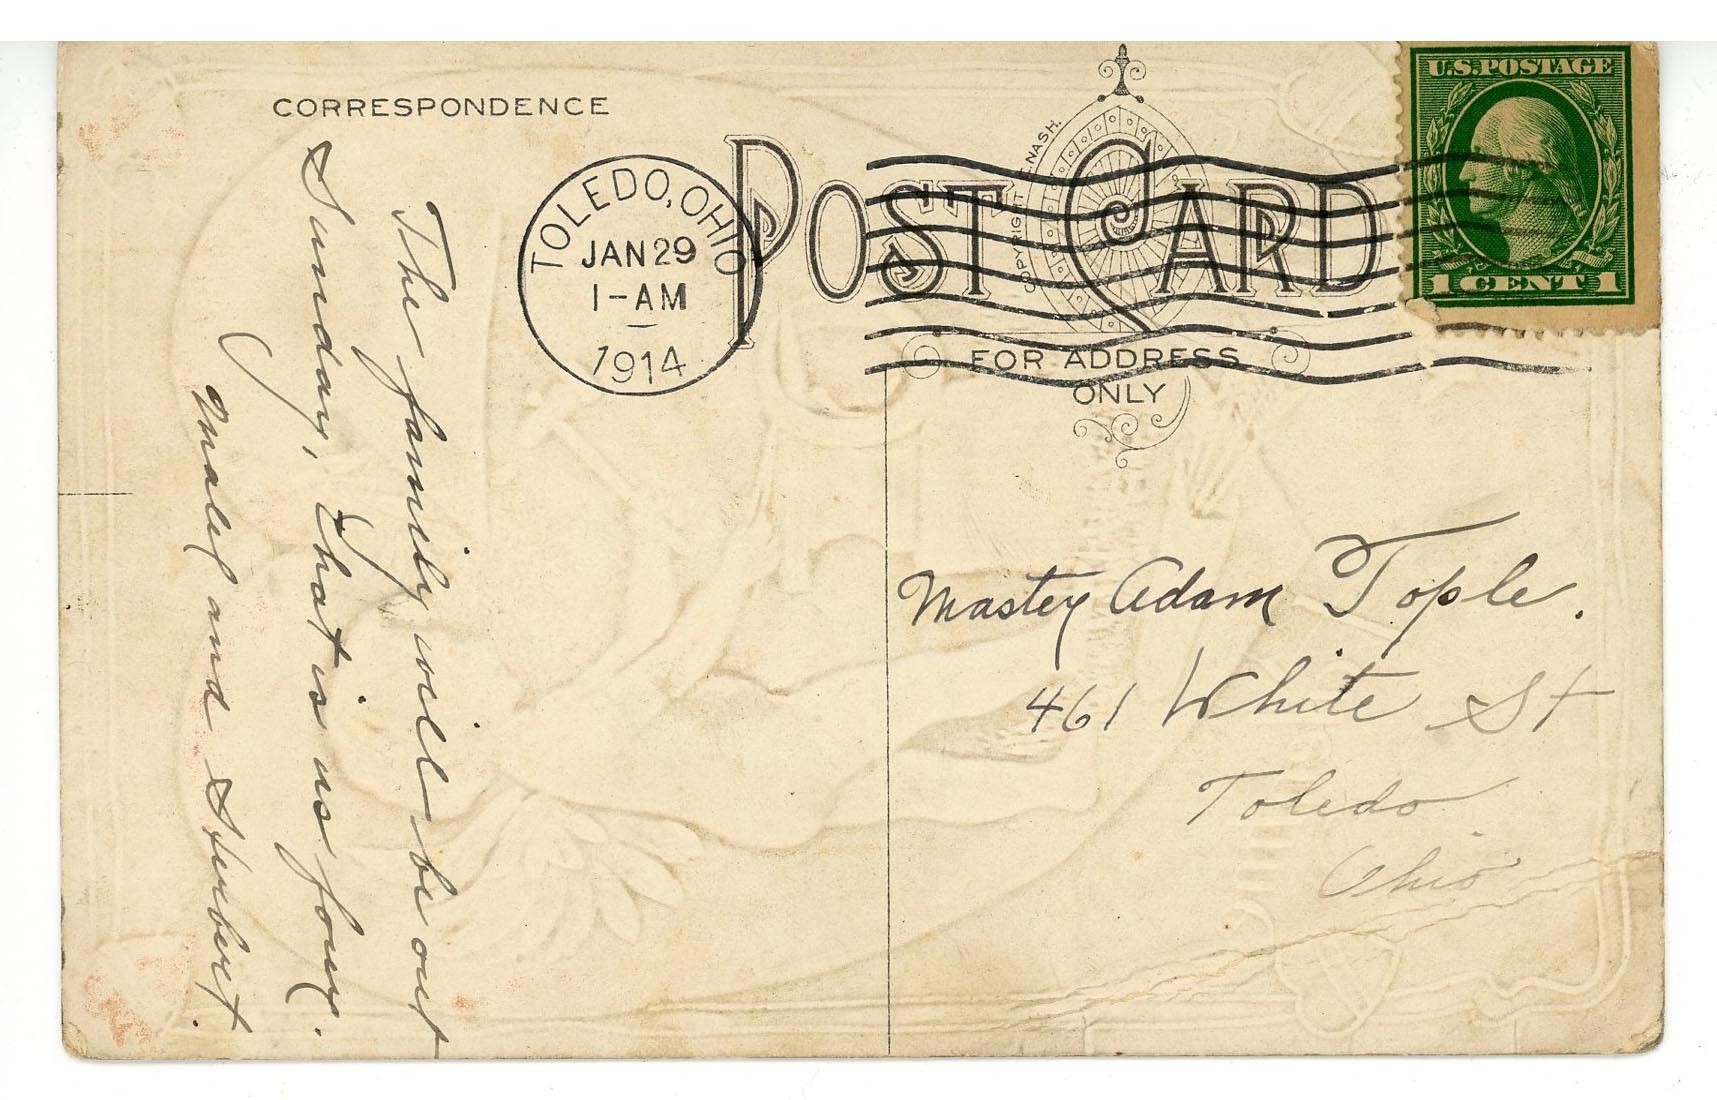 CORRESPONDENCE
The family will be out
Sunday, that is us four.
Mabel and Herbert.
TOLEDO, OHIO
JAN 29
1-AM
1914
POST CARD
COPYRIGHT E. NASH.
FOR ADDRESS
ONLY
U.S. POSTAGE
1 CENT 1
Master Adam Tople.
461 White St
Toledo
Ohio